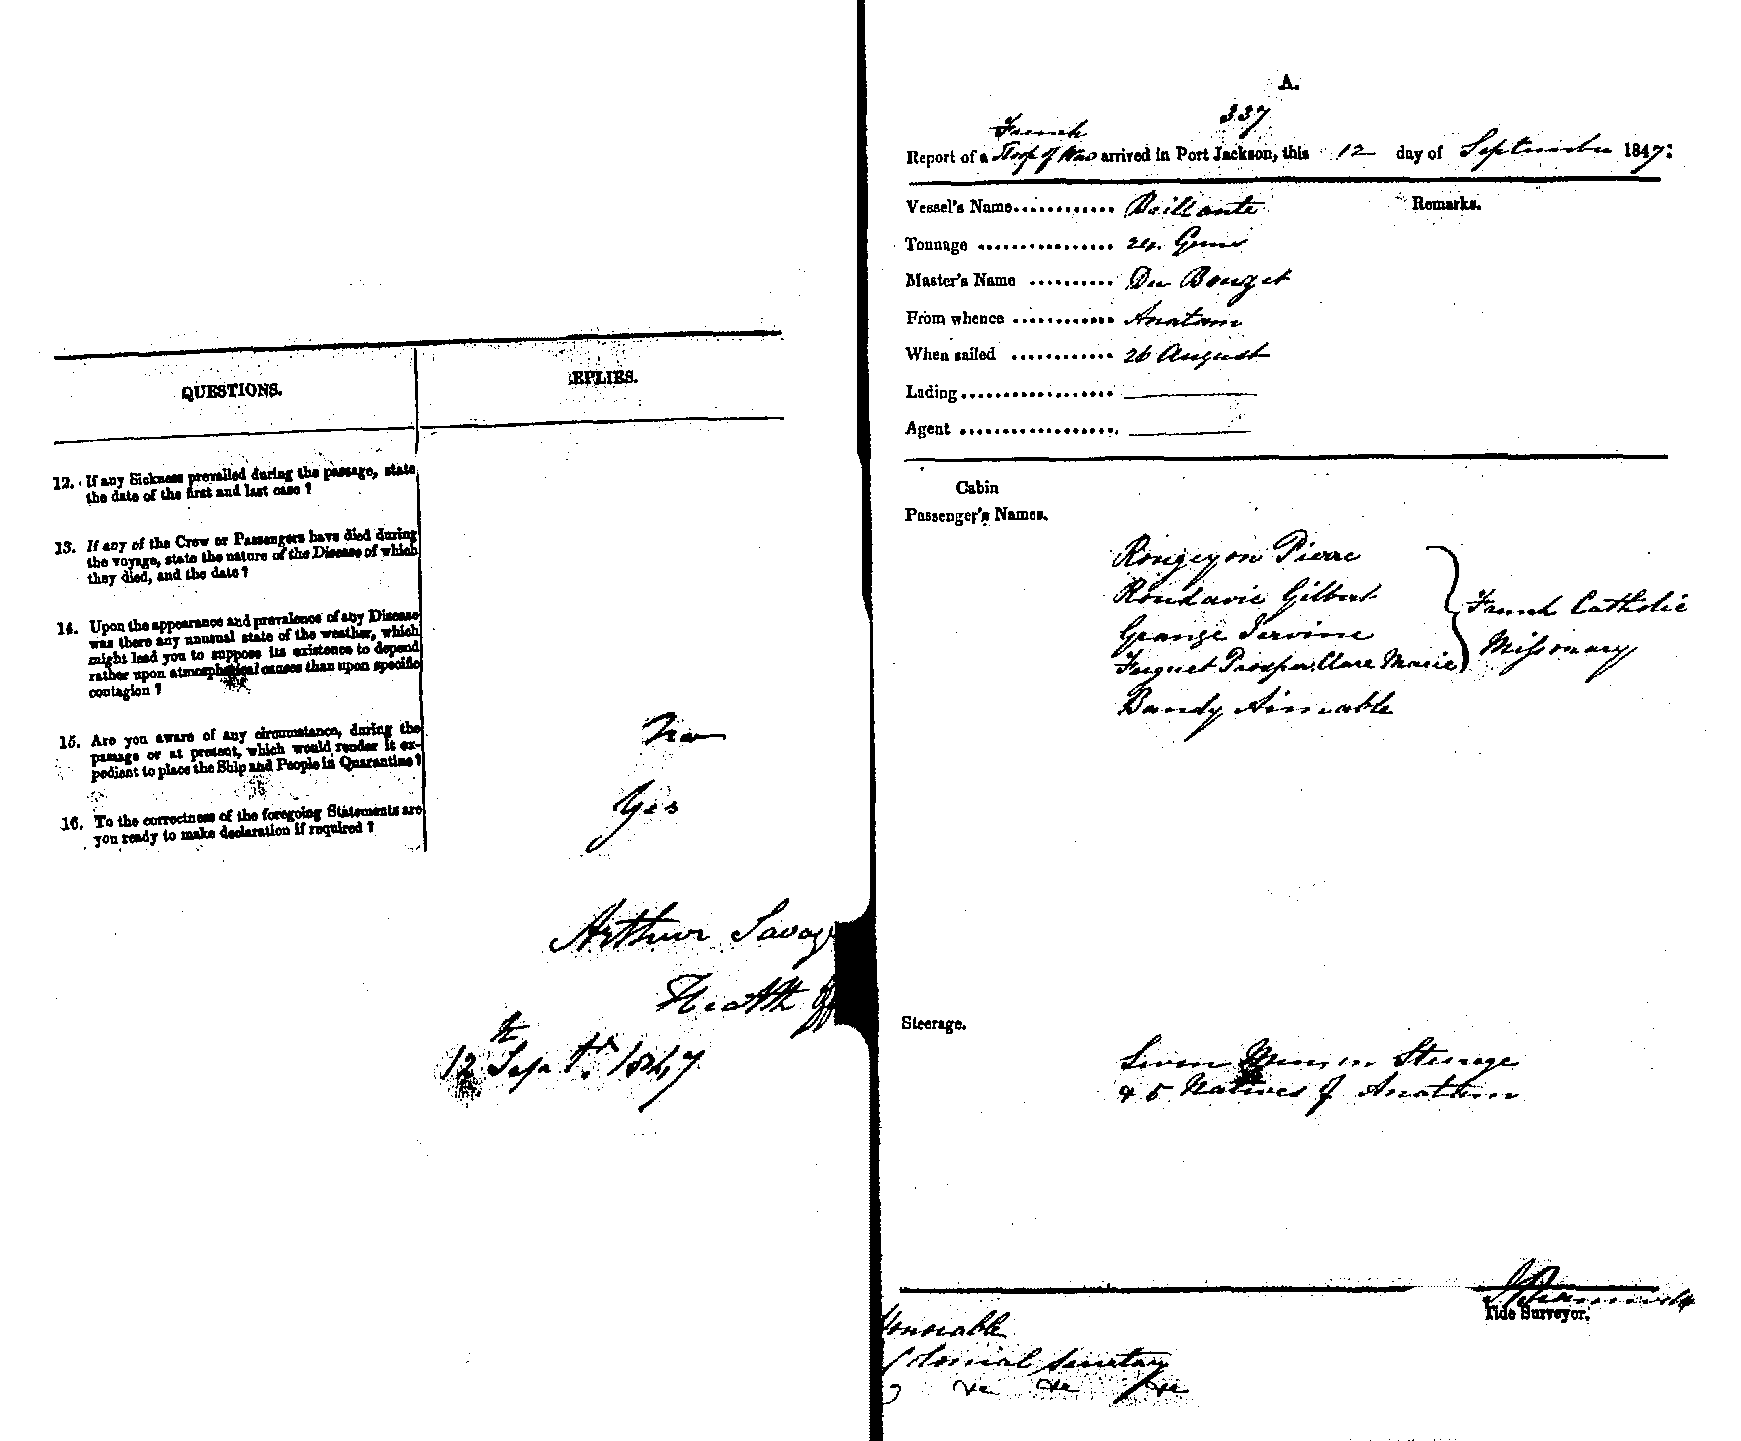 QUESTIONS.
EPLIES.
12. If any Sickness prevailed during the passage, state
the date of the first and last case?
13. If any of the Crew or Passengers have died during
the voyage, state the nature of the Disease of which
they died, and the date?
14. Upon the appearance and prevalence of any Disease
was there any unusual state of the weather, which
might lead you to suppose its existence to depend
rather upon atmospherical causes than upon specific
contagion?
15. Are you aware of any circumstance, during the
passage or at present, which would render it ex-
pedient to place the Ship and People in Quarantine?
No
16. To the correctness of the foregoing Statements are
you ready to make declaration if required?
Yes
Arthur Savage
Health Off
12th Sept. 1847
A.
337
French
Report of a Sloop of War arrived in Port Jackson, this 12 day of September 1847:
Vessel's Name Brillante
Remarks.
Tonnage 24 Guns
Master's Name Du Bouzet
From whence Anatam
When sailed 26 August
Lading
Agent
Cabin
Passenger's Names.
Rougeyon Pierre
Roudavie Gilbert
Grange Servine
Prosper Clare Marie
French Catholic
Missonary
Bandy Aimable
Steerage.
Seven Men in Steerage
& 5 Natives of Anatam
Tide Surveyor.
Honorable
Colonial Secretary
&c &c &c